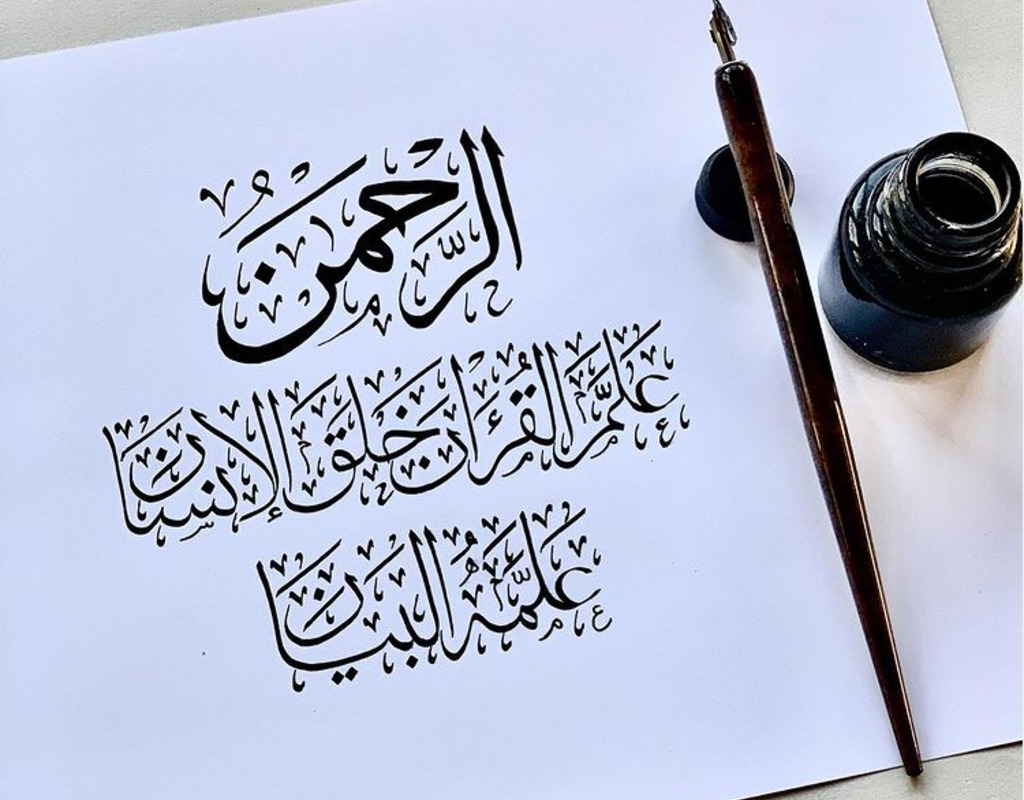 الرَّحْمَنُ
عَلَّمَ الْقُرْءَانَ خَلَقَ الْإِنسَانَ
عَلَّمَهُ الْبَيَانَ